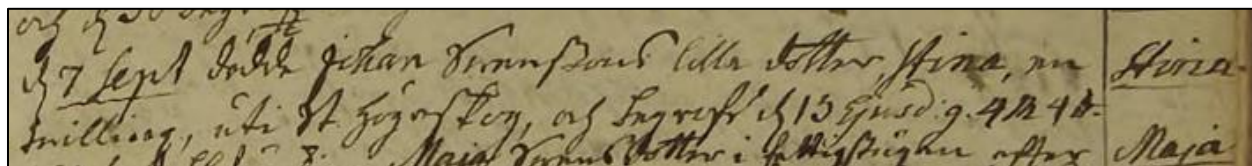 och d 30 begrofs
d 7 Sept dödde Johan Svenssons lilla dotter, Stina, en Stina
tvilling, uti St. Högeskog, och begrofs d 13 Ejusd: g. 4 M 4 d.
Maja Svensdotter i fattigstugan efter Maja